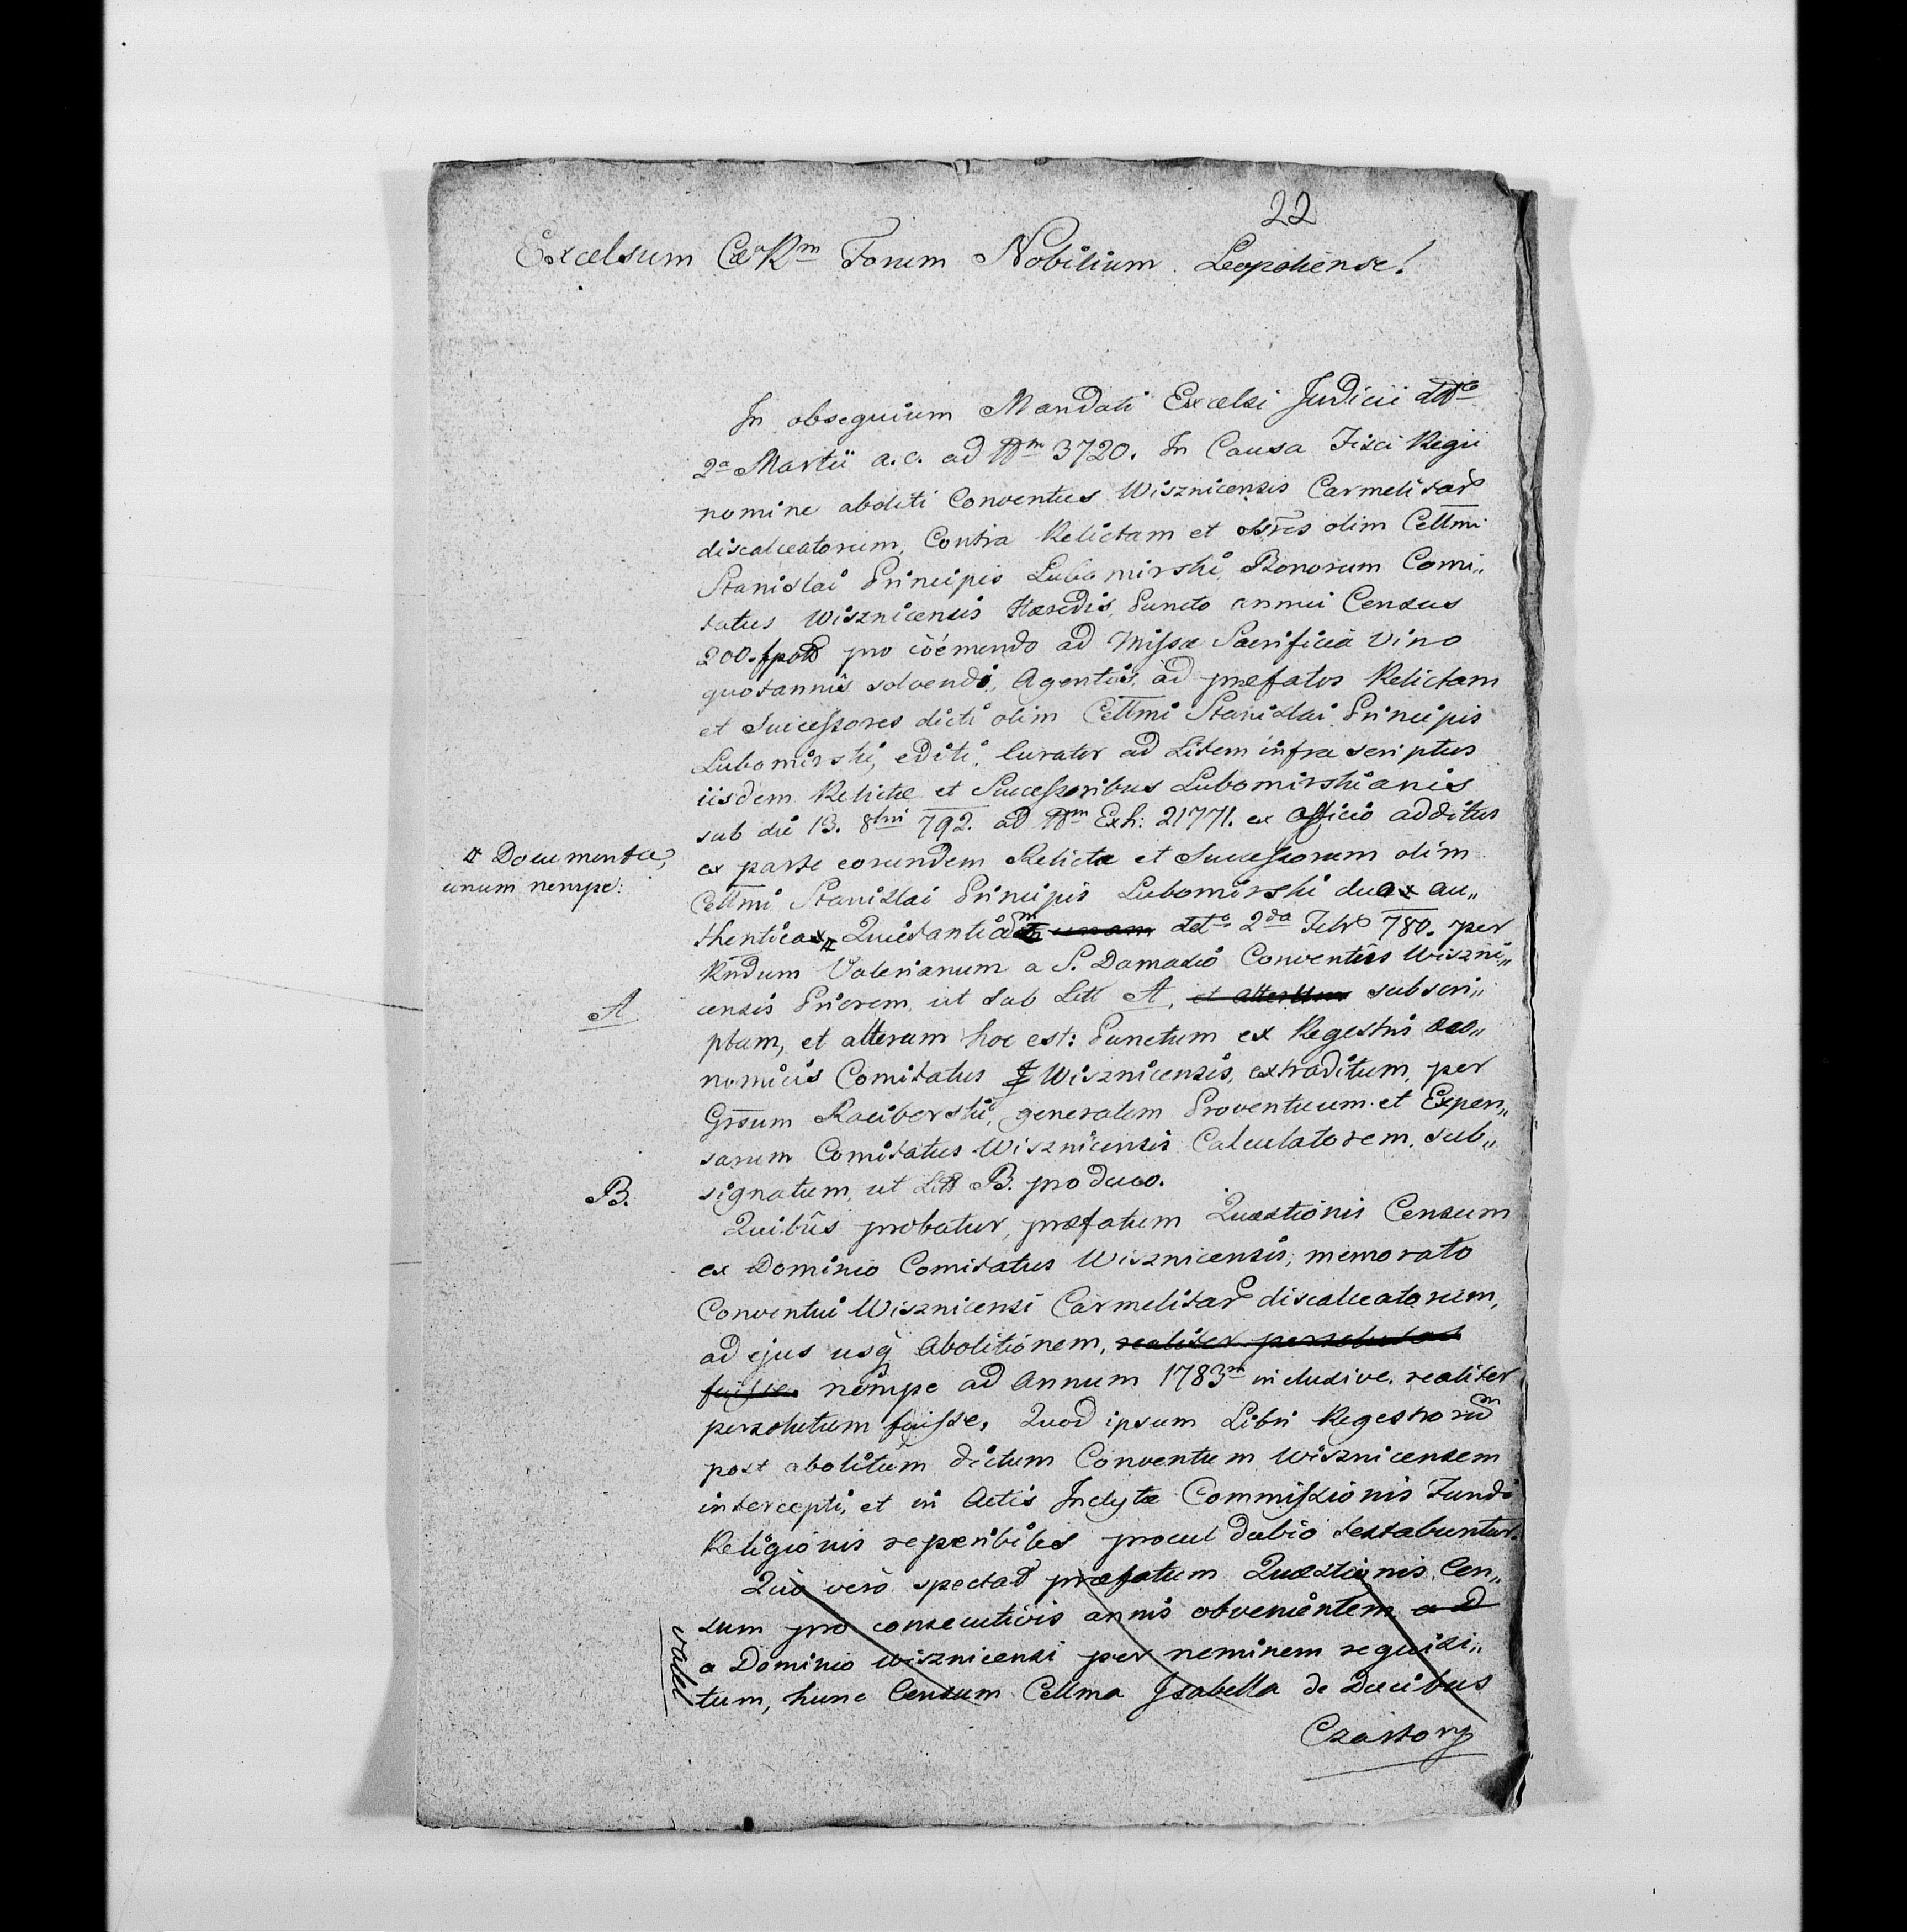 22
Excelsum CæoRm Forum Nobilium Leopoliense!
In obsequium Mandati Excelsi Judicii ddto
2a Martii a.c. ad Nrm 3720. In Causa Fisci Regii
nomine aboliti Conventus Wisznicensis Carmelitar
discalceatorum, Contra Relictam et Ssres olim Cellmi
Stanislai Principis Lubomirski, Bonorum Comi„
tatus Wisznicensis Hæredis, Puncto annui Census
200. fpol pro coëmendo ad Missæ Sacrificia Vino
quotannis solvendi, Agentis, ad præfatos Relictam
et Successores dicti olim Cellmi Stanislai Principis
Lubomirski, editi, Curator ad Litem infra scriptus
iisdem Relictæ et Successoribus Lubomirskianis
sub die 13. 8bri 792. ad Nrm Exh: 21771. ex Officio additus
ex parte eorundem Relictæ et Successorum olim
# Documenta,
unum nempe:
Cellmi Stanislai Principis Lubomirski duo au„
thentica # Quietantiam unam ddto 2da Febr 780. per
Rndum Valerianum a S. Damasio Conventûs Wiszni„
A
censis Priorem, ut sub Litt A, et alterum subscri„
ptam, et alterum hoc est: Punctum ex Regestris œco„
nomicis Comitatus Wisznicensis, extraditum, per
Grsum Raciberski, generalem Proventuum et Expen„
sarum Comitatus Wisznicensis Calculatorem, sub„
B.
signatum, ut Litt B. produco.
Quibûs probatur, præfatum Quæstionis Censum
ex Dominio Comitatus Wisznicensis, memorato
Conventui Wisznicensi Carmelitar discalceatorum,
ad ejus usq Abolitionem, realiter persolutum
fuisse. nempe ad Annum 1783m inclusive. realiter
persolutum fuisse, Quod ipsum Libri Regestrorum
post abolitum dictum Conventum Wisznicensem
intercepti, et in Actis Inclytæ Commissionis Fundi
Religionis reperibiles procul dubio testabuntur.
Quo vero spectat præfatum Quæstionis Cen„
sum pro consecutivis annis obvenientem ad
a Dominio Wisznicensi per neminem requisi„
tum, hunc Censum Cellma Isabella de Ducibus
valet
Czartory